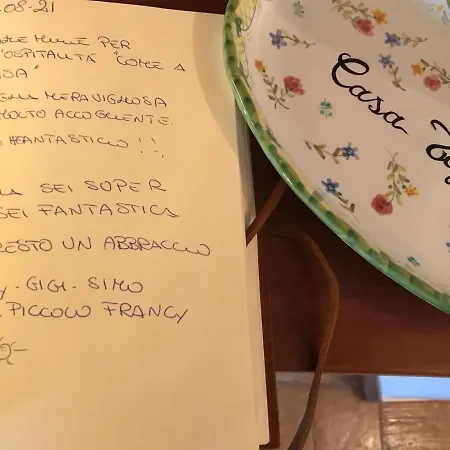 .08-21
PER
OSPITALITÀ "COME A
MERAVIGLIOSA
MOLTO ACCOGLIENTE.
FANTASTICO !!,
SEI SUPER
SEI FANTASTICA
UN ABBRACCIO
Y - GIGI - SIMO
PICCOLO FRANCY
Casa